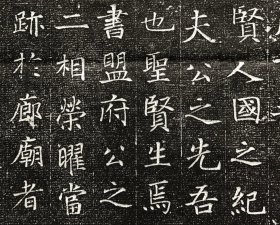 賢人國之紀
夫公之先吾
也聖賢生焉
書盟府公之
二相榮曜當
跡於廊廟者